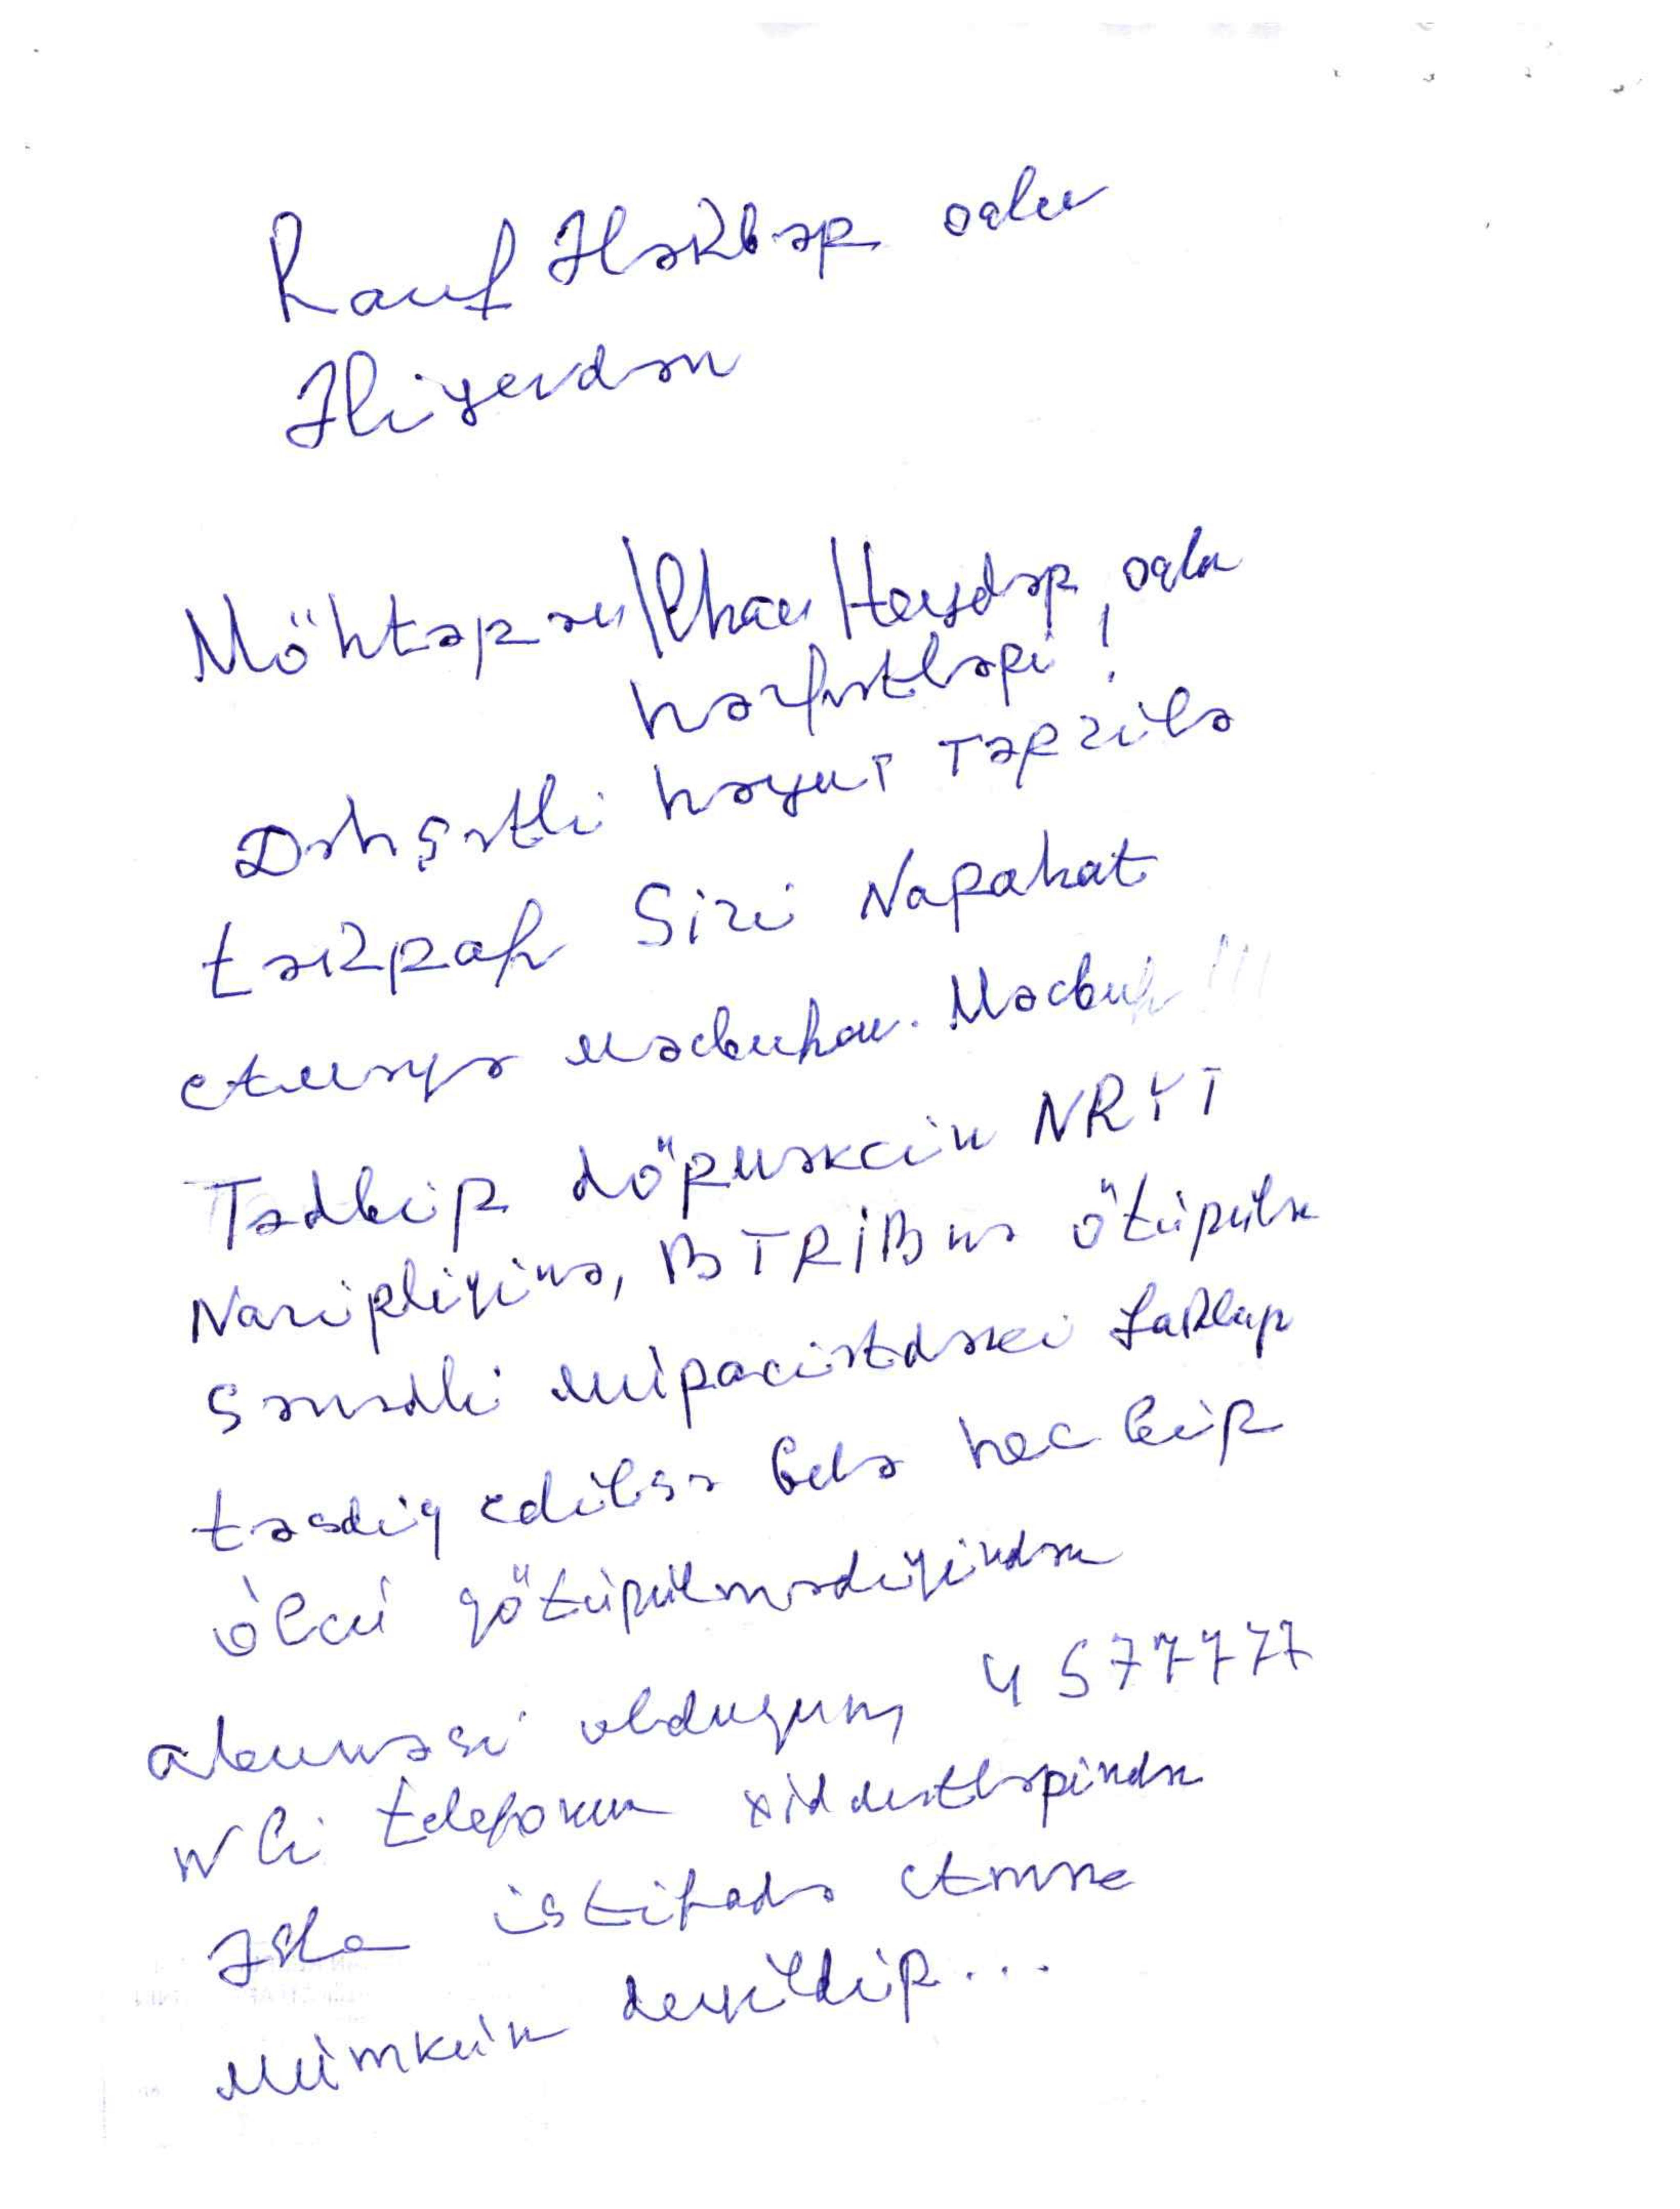 Rauf Ələkbər oğlu
Əliyevdən
Möhtərəm İlham Heydər oğlu
həzrətləri!
Dəhşətli həyat tərzilə
təkrar Sizi Narahat
etməyə məcburam. Məcbur!!!
Tədbir görməkçin NRYT
Nazirliyinə, BTRİB nə ötürülən
Sənədli müraciətdəki faktlar
təsdiq edilsə belə heç bir
ölçü götürülmədiyindən
abunəsi olduğum 4577777
№ li telefonun xidmətlərindən
əsla istifadə etmək
mümkün deyildir...